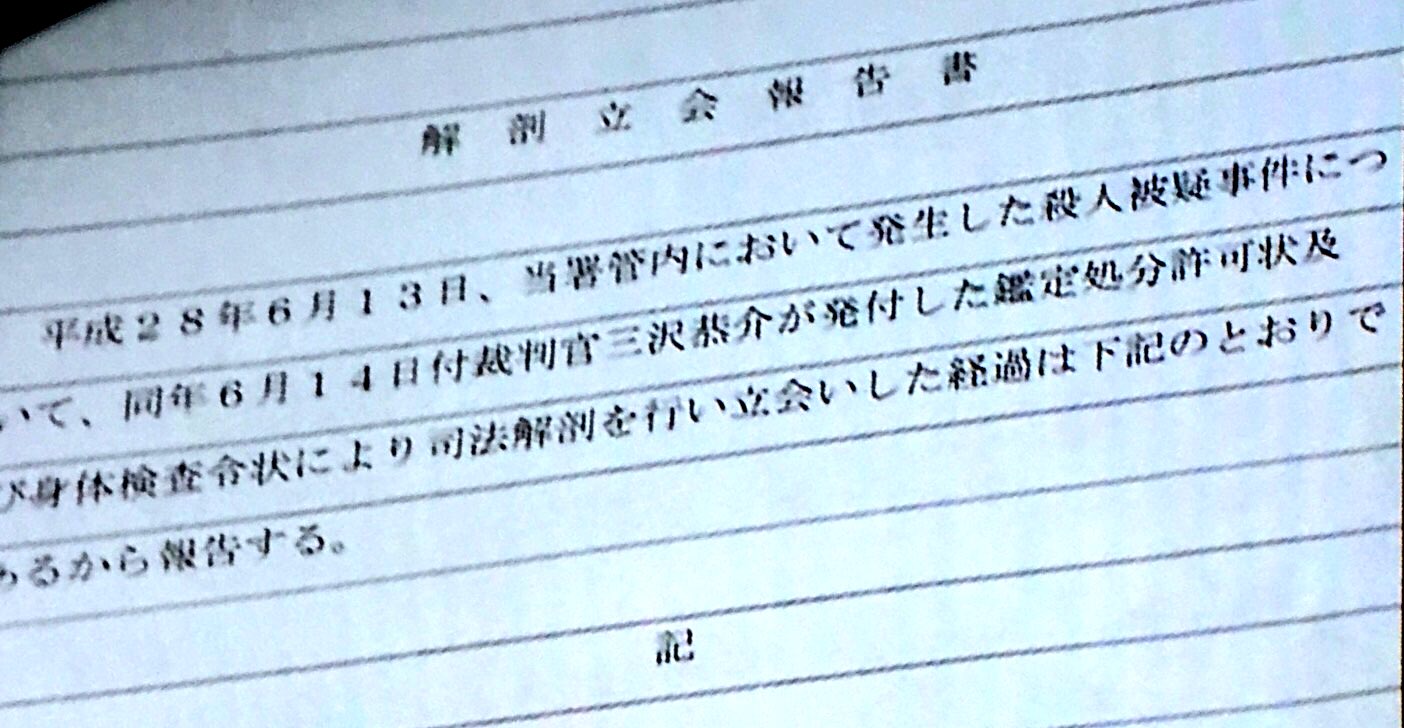 解剖立会報告書
平成28年6月13日、当署管内において発生した殺人被疑事件につ
いて、同年6月14日付裁判官三沢恭介が発付した鑑定処分許可状及
び身体検査令状により司法解剖を行い立会いした経過は下記のとおりで
あるから報告する。
記